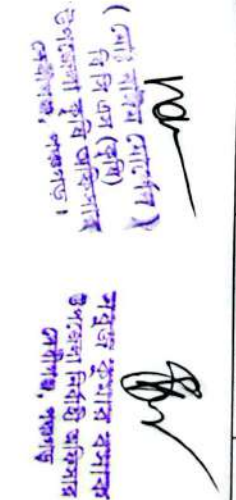 ( মোঃ নাঈম মোর্শেদ )
বি সি এস (কৃষি)
উপজেলা কৃষি অফিসার
দেবীগঞ্জ, পঞ্চগড়।
সবুজ কুমার বসাক
উপজেলা নির্বাহী অফিসার
দেবীগঞ্জ, পঞ্চগড়